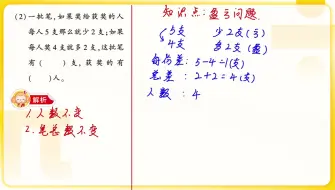 (2)一批笔,如果奖给获奖的人
每人5支那么就少2支;如果
每人奖4支就多2支,这批笔
有(  )支,获奖的有
(  )人。
解析
1.人数不变
2.笔总数不变
知识点:盈亏问题.
5支 少2支(亏)
4支 多2支(盈)
每份差:5-4=1(支)
总差:2+2=4(支)
人数:4